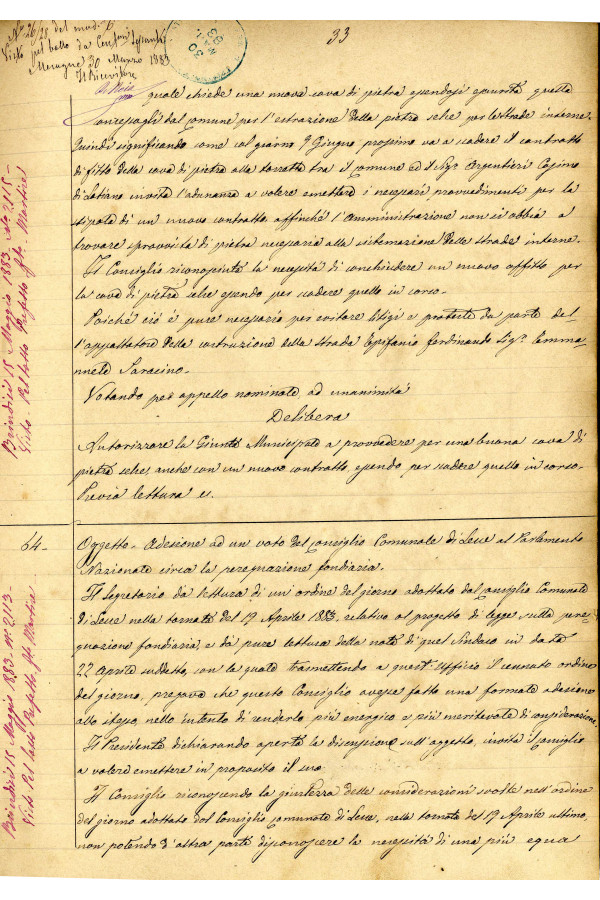 33
Nº 26/28 del mod. 6
Visto pel bollo da
Mesagne 30 Marzo 1883
Il Ricevitore
quale chiede una nuova cava di pietra essendosi esaurita quella
concessagli dal Comune per l'estrazione della pietra selce per le strade interne.
Quindi significando come col giorno 9 Giugno prossimo va a scadere il contratto
di fitto della cava di pietra alla torretta tra il Comune ed il Sigr Argentieri Cosimo
di Latiano invita l'adunanza a volere emettere i necessari provvedimenti per la
stipola di un nuovo contratto affinché l'Amministrazione non si abbia a
trovare sprovvista di pietra necessaria alla sistemazione delle strade interne.
Il Consiglio riconosciuta la necessità di conchiudere un nuovo affitto per
la cava di pietra selce essendo per scadere quello in corso.
Poiché ciò è pure necessario per evitare litigi e proteste da parte del-
l'appaltatore della costruzione della strada Epifanio Ferdinando Sigr Emma-
nuele Saracino.
Votando per appello nominale, ad unanimità
Delibera
Autorizzare la Giunta Municipale a provvedere per una buona cava di
pietra selce, anche con un nuovo contratto, essendo per scadere quello in corso.
Previa lettura
Brindisi 15 Maggio 1883. Nº 2115-
Visto. Pel Prefetto fto Martini
64-
Oggetto- Adesione ad un voto del Consiglio Comunale di Lecce al Parlamento
Nazionale circa la perequazione fondiaria.
Il Segretario dà lettura di un ordine del giorno adottato dal Consiglio Comunale
di Lecce nella tornata del 19 Aprile 1883, relativo al progetto di legge sulla pere-
quazione fondiaria, e dà pure lettura della nota di quel Sindaco in data
22 Aprile suddetto, con la quale trasmettendo a quest'Ufficio il cennato ordine
del giorno, pregava che questo Consiglio avesse fatto una formale adesione
allo stesso, nello intento di renderlo più energico e più meritevole di considerazione.
Il Presidente dichiarando aperta la discussione sull'oggetto, invita il Consiglio
a volere emettere in proposito il suo
Il Consiglio riconoscendo la giustezza delle considerazioni svolte nell'ordine
del giorno adottato dal Consiglio Comunale di Lecce, nella tornata del 19 Aprile ultimo,
non potendo d'altra parte disconoscere la necessità di una più equa
Brindisi 15 Maggio 1883. Nº 2113-
Visto Pel Prefetto fto Martini